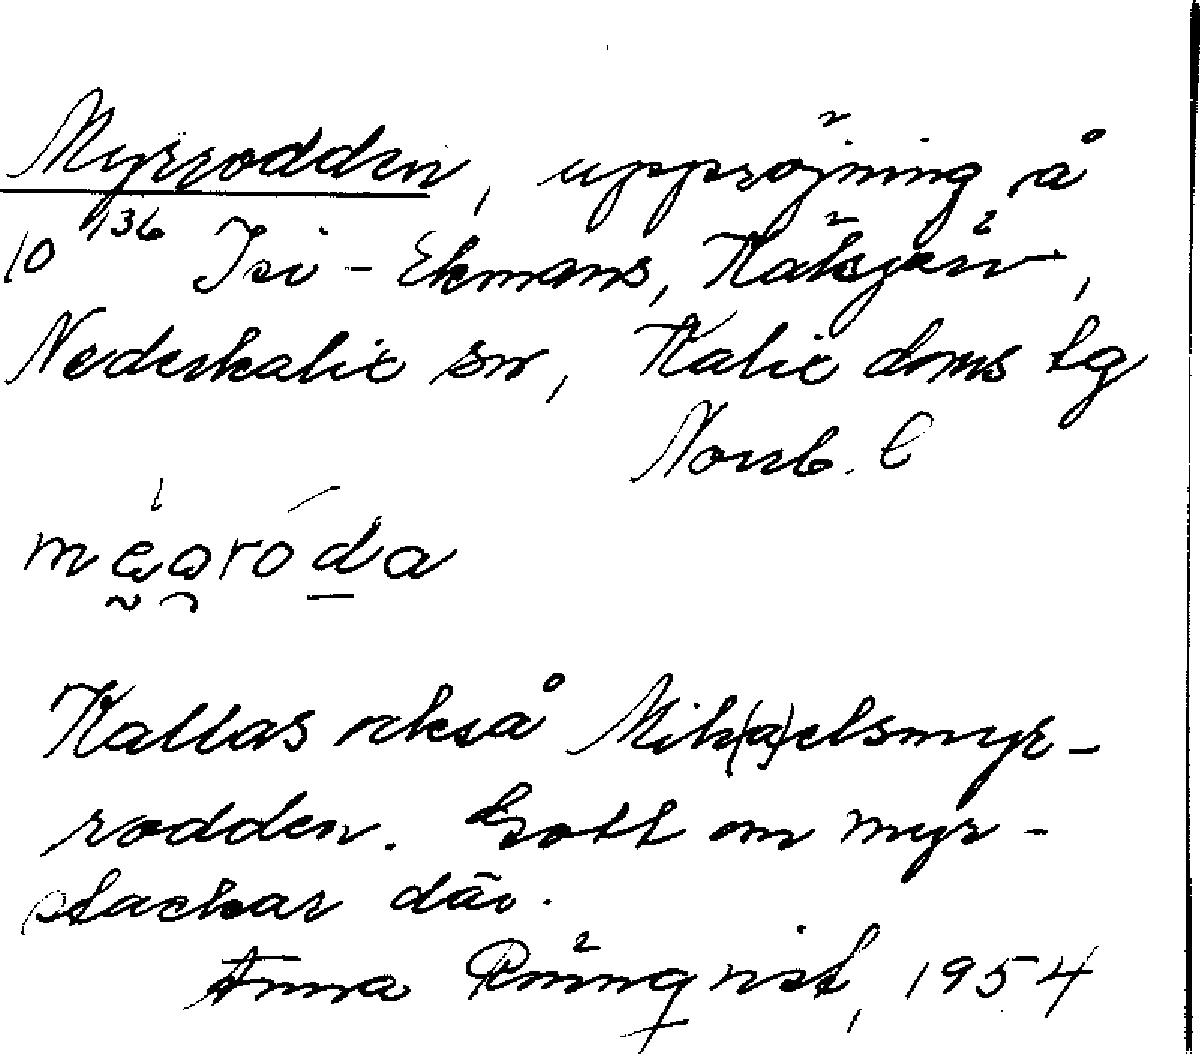 Myrrodden, uppröjning å
10 136 Isi-Ekmans, Räksjärv,
Nederkalix sn, Kalix doms lg
Norrb. l
Kallas också Mik(a)elsmyr-
rodden. Gott om myr-
stackar där.
Anna Rönnqvist, 1954